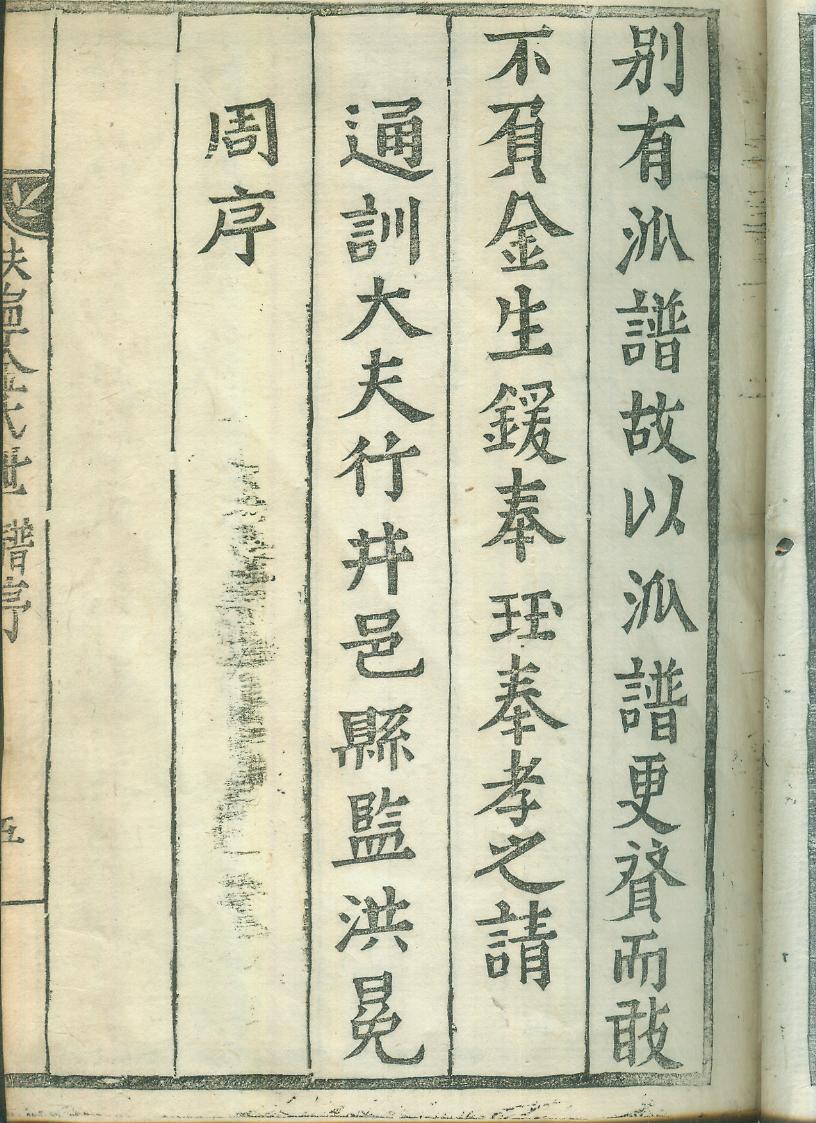 别有泒譜故以泒譜更贅而敢
不負金生鍰奉珏奉孝之請
通訓大夫行井邑縣監洪冕
周序
扶寧金氏世譜序
五